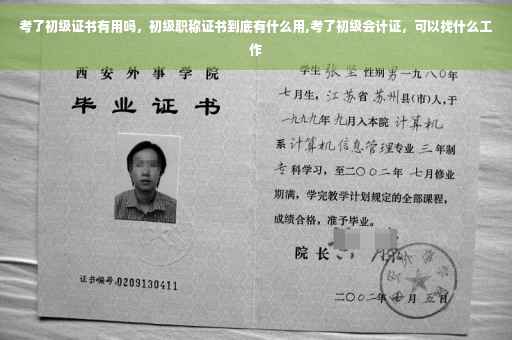 考了初级证书有用吗，初级职称证书到底有什么用,考了初级会计证，可以找什么工
作
西安外事学院
毕业证书
证书编号:0209130411
学生张坚性别男一九八〇年
七月生，江苏省苏州县(市)人,于
一九九九年九月入本院计算机
系计算机信息管理专业三年制
专科学习，至二〇〇二年七月修业
期满，学完教学计划规定的全部课程，
成绩合格，准予毕业。
院长
二〇〇二年 月五日